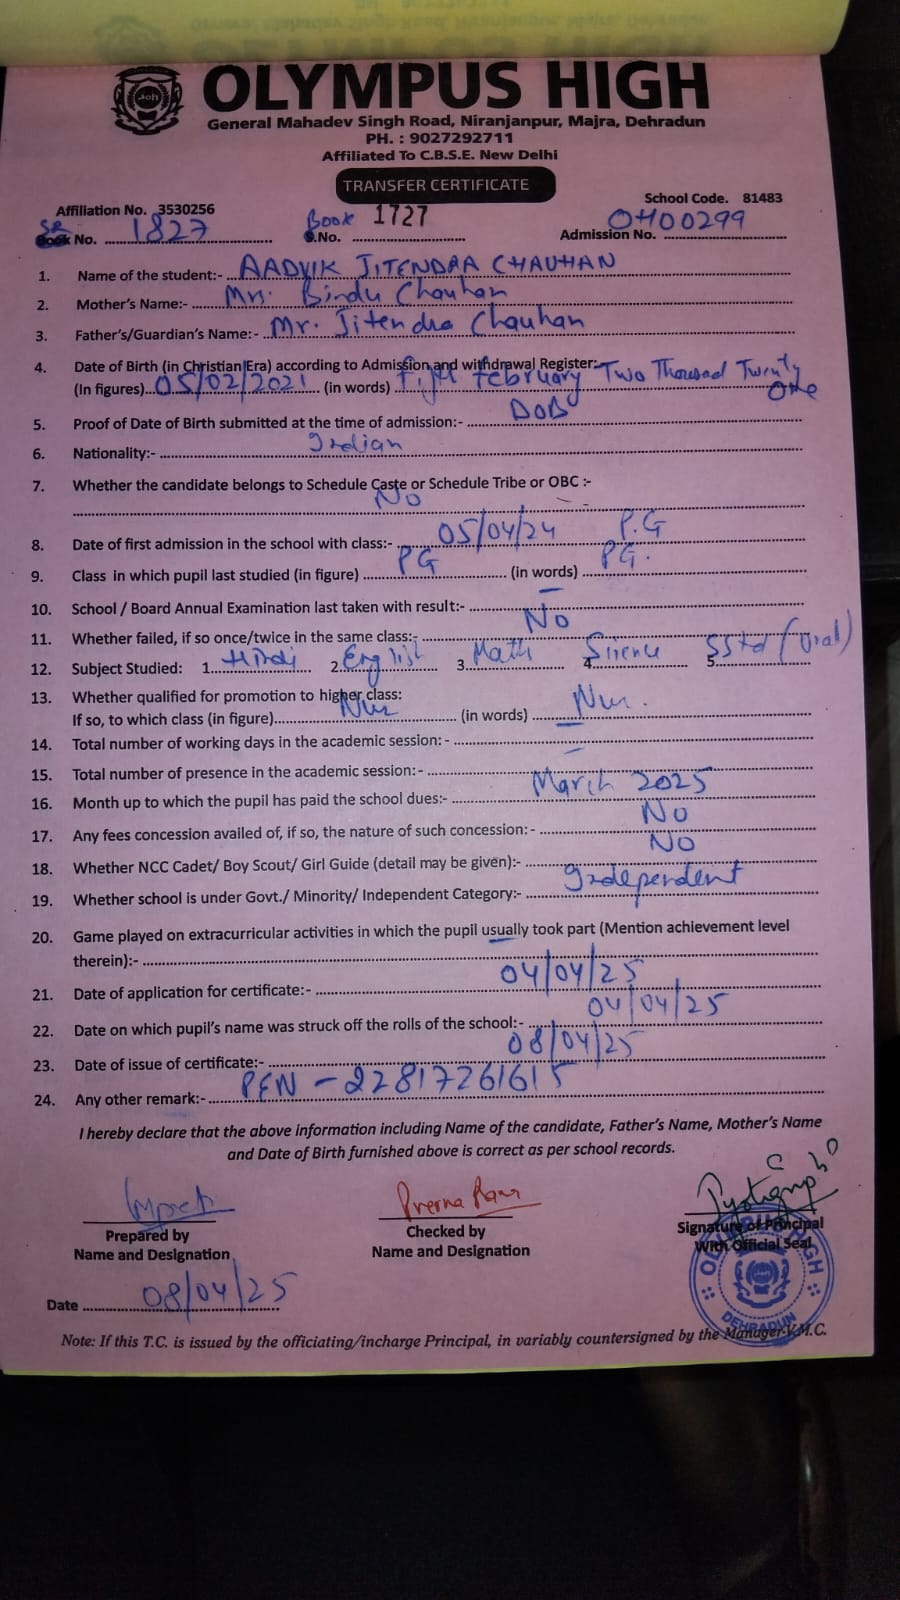 OLYMPUS HIGH
General Mahadev Singh Road, Niranjanpur, Majra, Dehradun
PH. : 9027292711
Affiliated To C.B.S.E. New Delhi
TRANSFER CERTIFICATE
Affiliation No. 3530256 School Code. 81483
SR No. 1827 Book No. 1727 Admission No. OH00299
1. Name of the student:- AADVIK JITENDRA CHAUHAN
2. Mother's Name:- Mrs. Bindu Chauhan
3. Father's/Guardian's Name:- Mr. Jitendra Chauhan
4. Date of Birth (in Christian Era) according to Admission and withdrawal Register:-
(In figures) 05/02/2021 (in words) Fifth February Two Thousad Twenty One
5. Proof of Date of Birth submitted at the time of admission:- DOB
6. Nationality:- Indian
7. Whether the candidate belongs to Schedule Caste or Schedule Tribe or OBC :-
No
8. Date of first admission in the school with class:- 05/04/24 P.G
9. Class in which pupil last studied (in figure) PG (in words) PG.
10. School / Board Annual Examination last taken with result:- —
11. Whether failed, if so once/twice in the same class:- No
12. Subject Studied: 1. Hindi 2. English 3. Math 4. Sicence 5. SStd (Oral)
13. Whether qualified for promotion to higher class:
If so, to which class (in figure) Nur (in words) Nur.
14. Total number of working days in the academic session: - —
15. Total number of presence in the academic session:- —
16. Month up to which the pupil has paid the school dues:- March 2025
17. Any fees concession availed of, if so, the nature of such concession: - No
18. Whether NCC Cadet/ Boy Scout/ Girl Guide (detail may be given):- No
19. Whether school is under Govt./ Minority/ Independent Category:- Independent
20. Game played on extracurricular activities in which the pupil usually took part (Mention achievement level
therein):-
21. Date of application for certificate:- 04/04/25
22. Date on which pupil's name was struck off the rolls of the school:- 04/04/25
23. Date of issue of certificate:- 08/04/25
24. Any other remark:- PEN - 22817261615
I hereby declare that the above information including Name of the candidate, Father's Name, Mother's Name
and Date of Birth furnished above is correct as per school records.
Prerna Rana
Prepared by Checked by Signature of Principal
Name and Designation Name and Designation With Official Seal
OLYMPUS HIGH DEHRADUN
Date 08/04/25
Note: If this T.C. is issued by the officiating/incharge Principal, in variably countersigned by the Manager V.M.C.